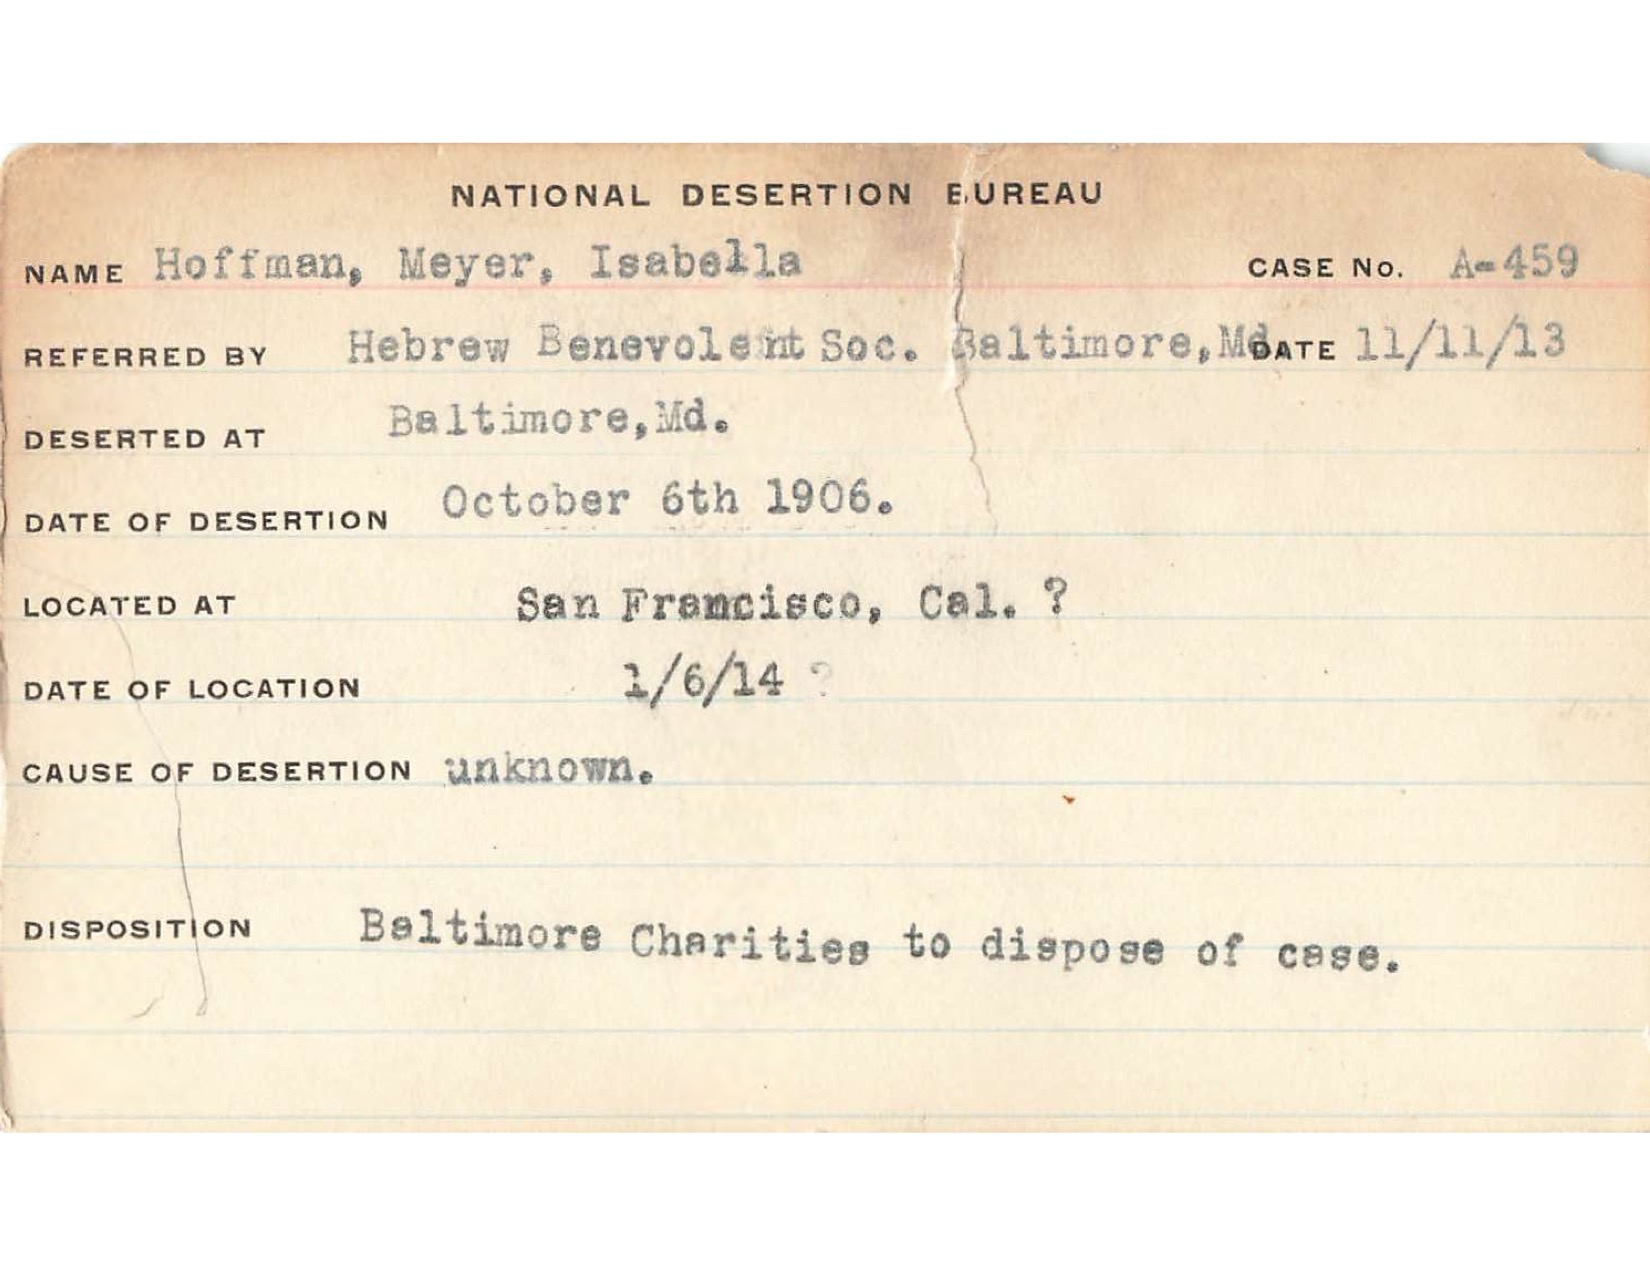 NATIONAL DESERTION BUREAU
NAME Hoffman, Meyer, Isabella CASE No. A-459
REFERRED BY Hebrew Benevolent Soc. Baltimore,Md. DATE 11/11/13
DESERTED AT Baltimore,Md.
DATE OF DESERTION October 6th 1906.
LOCATED AT San Francisco, Cal. ?
DATE OF LOCATION 1/6/14 ?
CAUSE OF DESERTION unknown.
DISPOSITION Baltimore Charities to dispose of case.